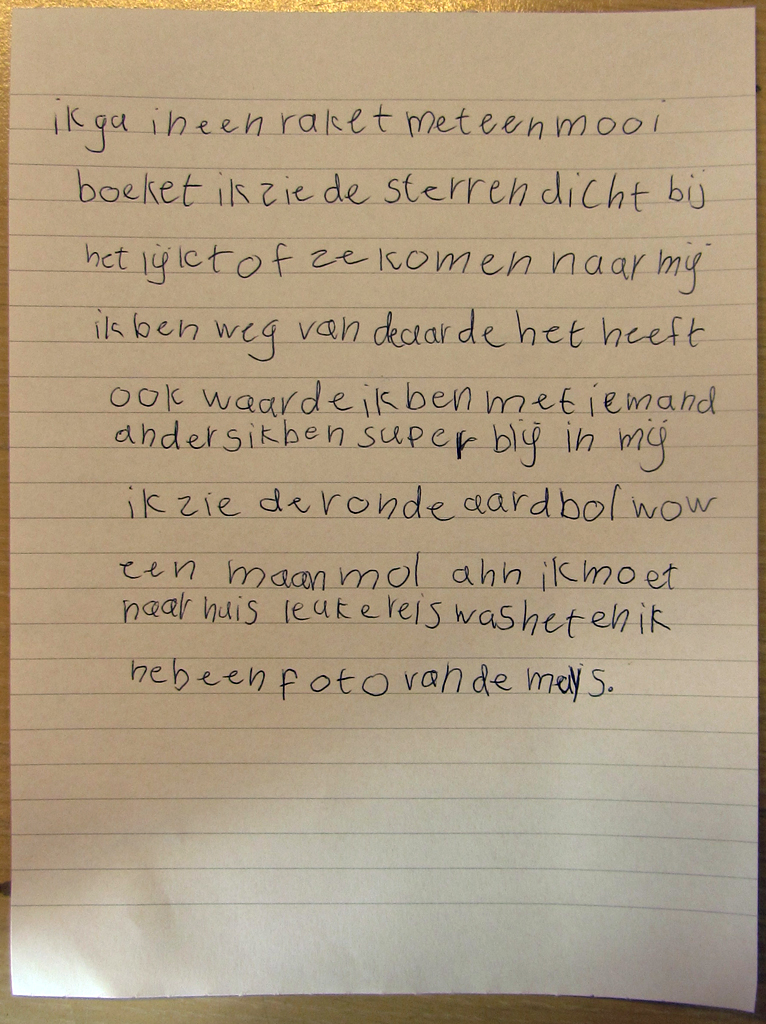 ik ga in een raket met een mooi
boeket ik zie de sterren dicht bij
het lijkt of ze komen naar mij
ik ben weg van de aarde het heeft
ook waarde ik ben met iemand
anders ik ben super blij in mij
ik zie de ronde aardbol wow
een maan mol ahh ik moet
naar huis leuke reis was het en ik
heb een foto van de